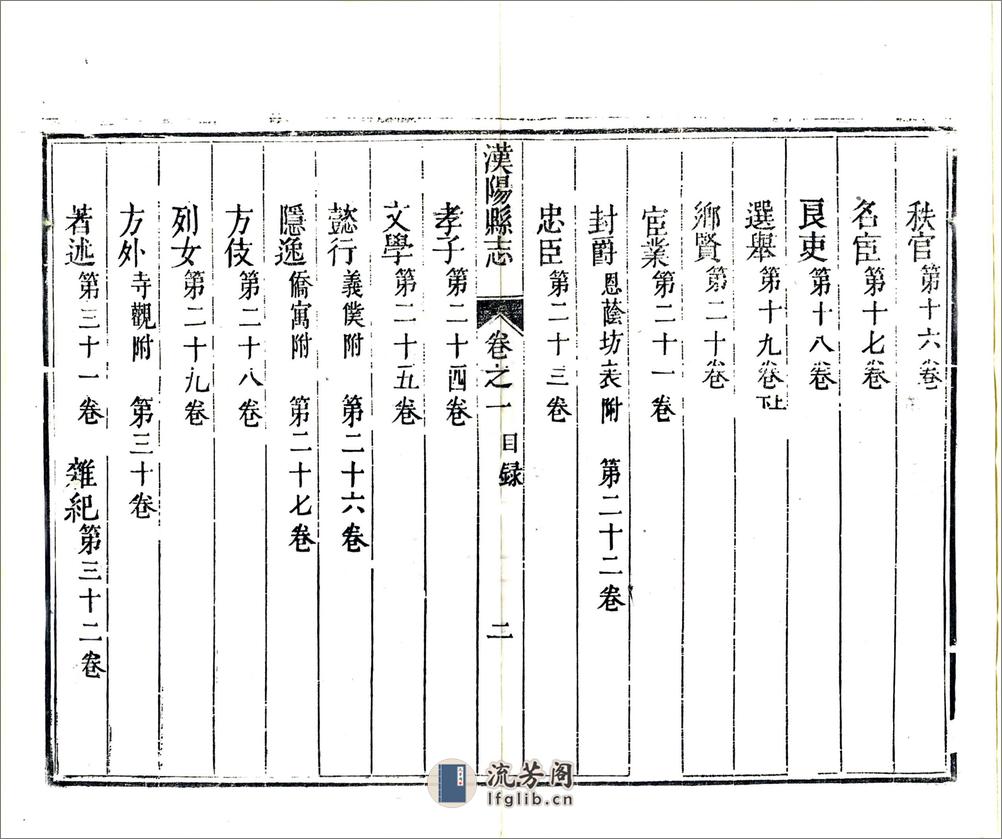 秩官第十六卷
名宦第十七卷
良吏第十八卷
選舉第十九卷上下
鄉賢第二十卷
宦業第二十一卷
封爵恩蔭坊表附 第二十二卷
忠臣第二十三卷
漢陽縣志 卷之一 目録 二
孝子第二十四卷
文學第二十五卷
懿行義僕附 第二十六卷
隱逸僑寓附 第二十七卷
方伎第二十八卷
列女第二十九卷
方外寺觀附 第三十卷
著述第三十一卷 雜紀第三十二卷
流芳阁
lfglib.cn